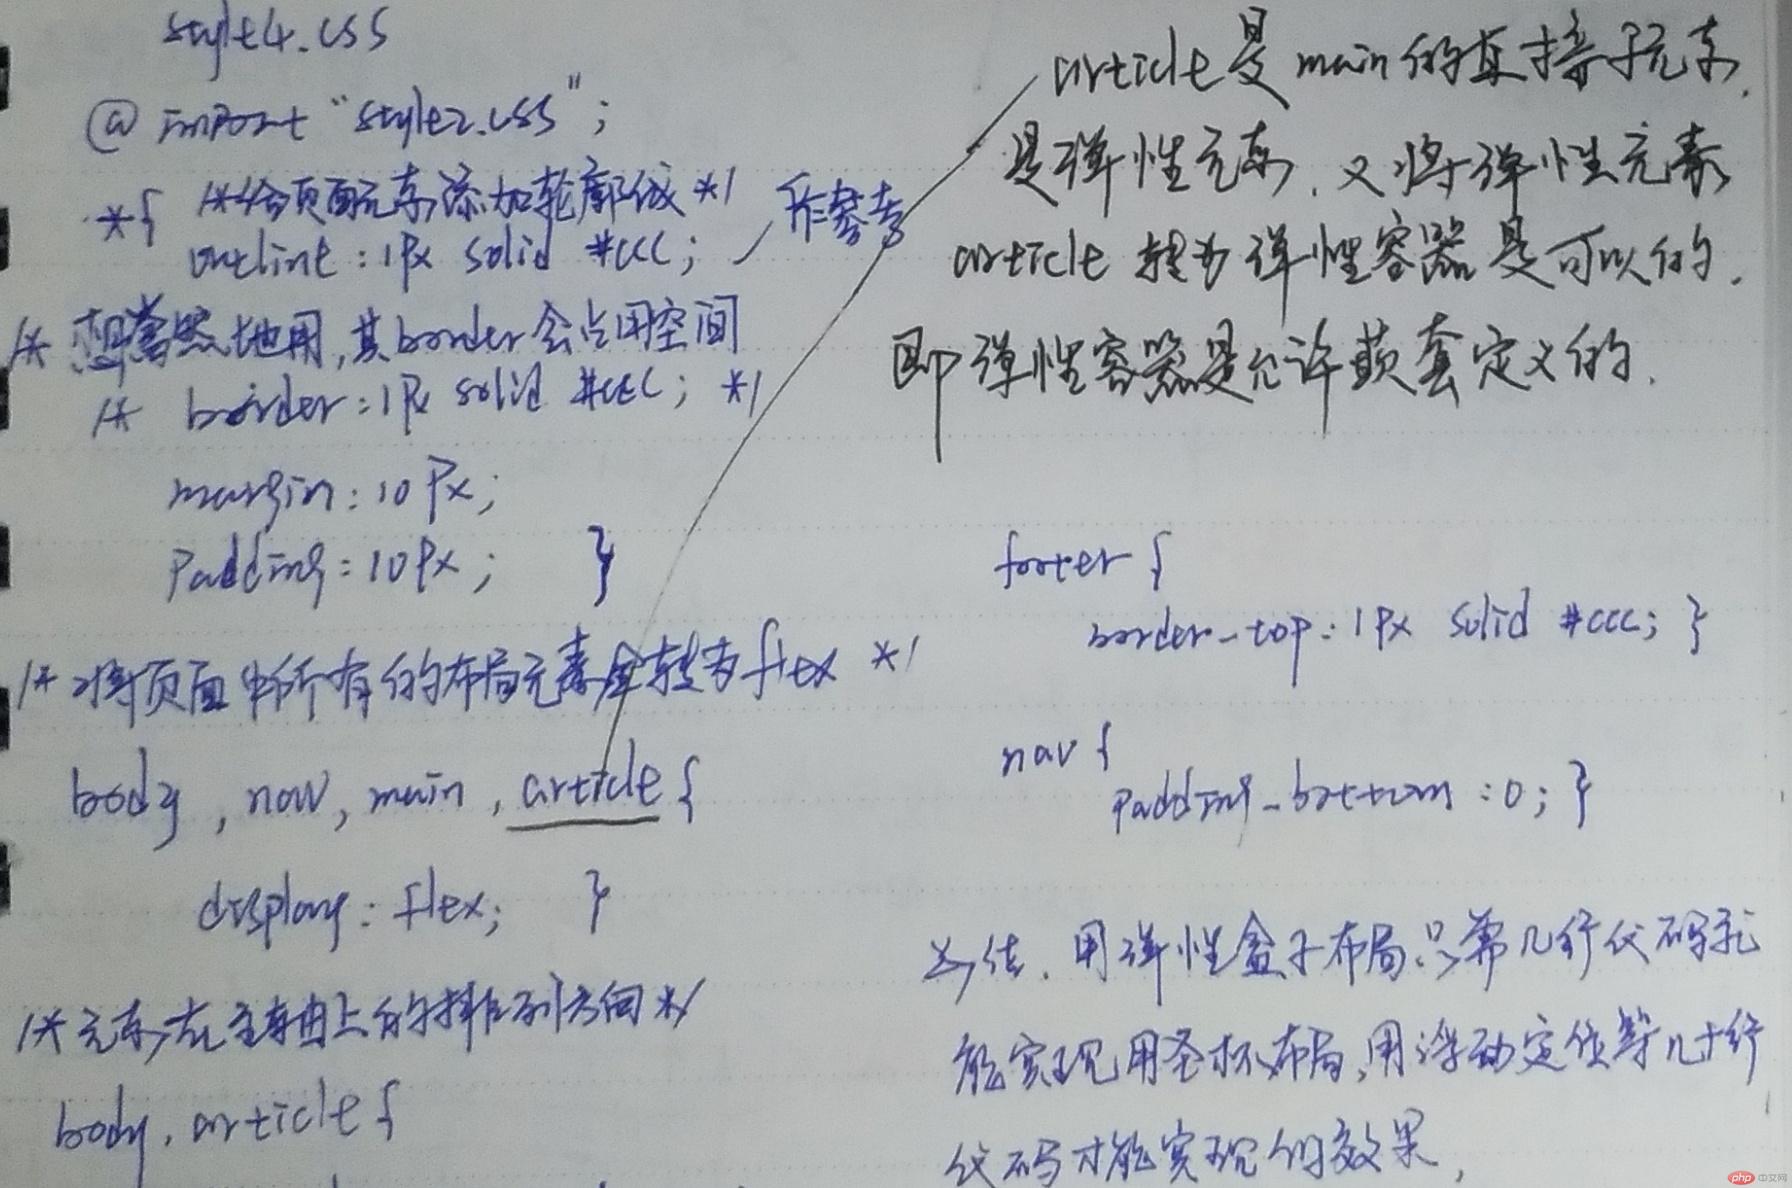 style4.css
@import "style2.css";
*{ /*给页面元素添加轮廓线*/
outline:1px solid #ccc; 作参考
/* 想当然地用,其border会占用空间
/* border:1px solid #ccc; */
margin:10px;
padding:10px; }
/*将页面中所有的布局元素全转为flex */
body,nav,main,article{
display:flex; }
/*元素在主轴上的排列方向*/
body,article{
article是main的直接子元素.
是弹性元素,又将弹性元素
article转为弹性容器是可以的.
即弹性容器是允许嵌套定义的.
footer{
border-top:1px solid #ccc; }
nav{
padding-bottom:0; }
总结.用弹性盒子布局.只需几行代码就
能实现用圣杯布局,用浮动定位等几十行
代码才能实现的效果,
php 中文网